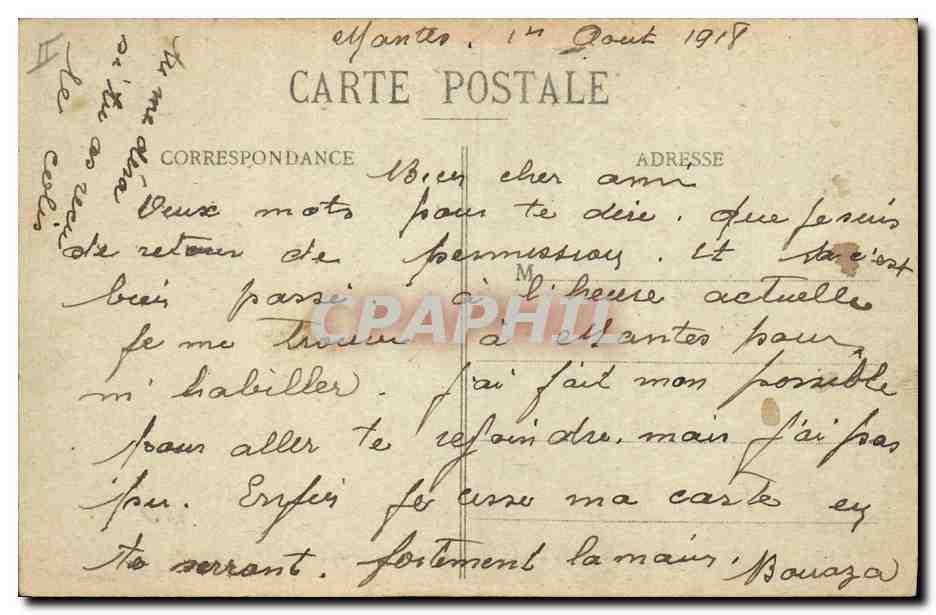 Mantes. 1er Aout 1918
CARTE POSTALE
CORRESPONDANCE
ADRESSE
Bien cher ami
Deux mots pour te dire. que je suis
de retour de permission. et sa c'est
M
bien passé à l'heure actuelle
CPAPHIL
je me trouve à Mantes pour
m'habiller. j'ai fait mon possible
pour aller te rejoindre. mais j'ai pas
pu. Enfin je cesse ma carte en
te serrant. fortement la main.
Bouaza
tu me dira
si tu as reçu
le colis
II